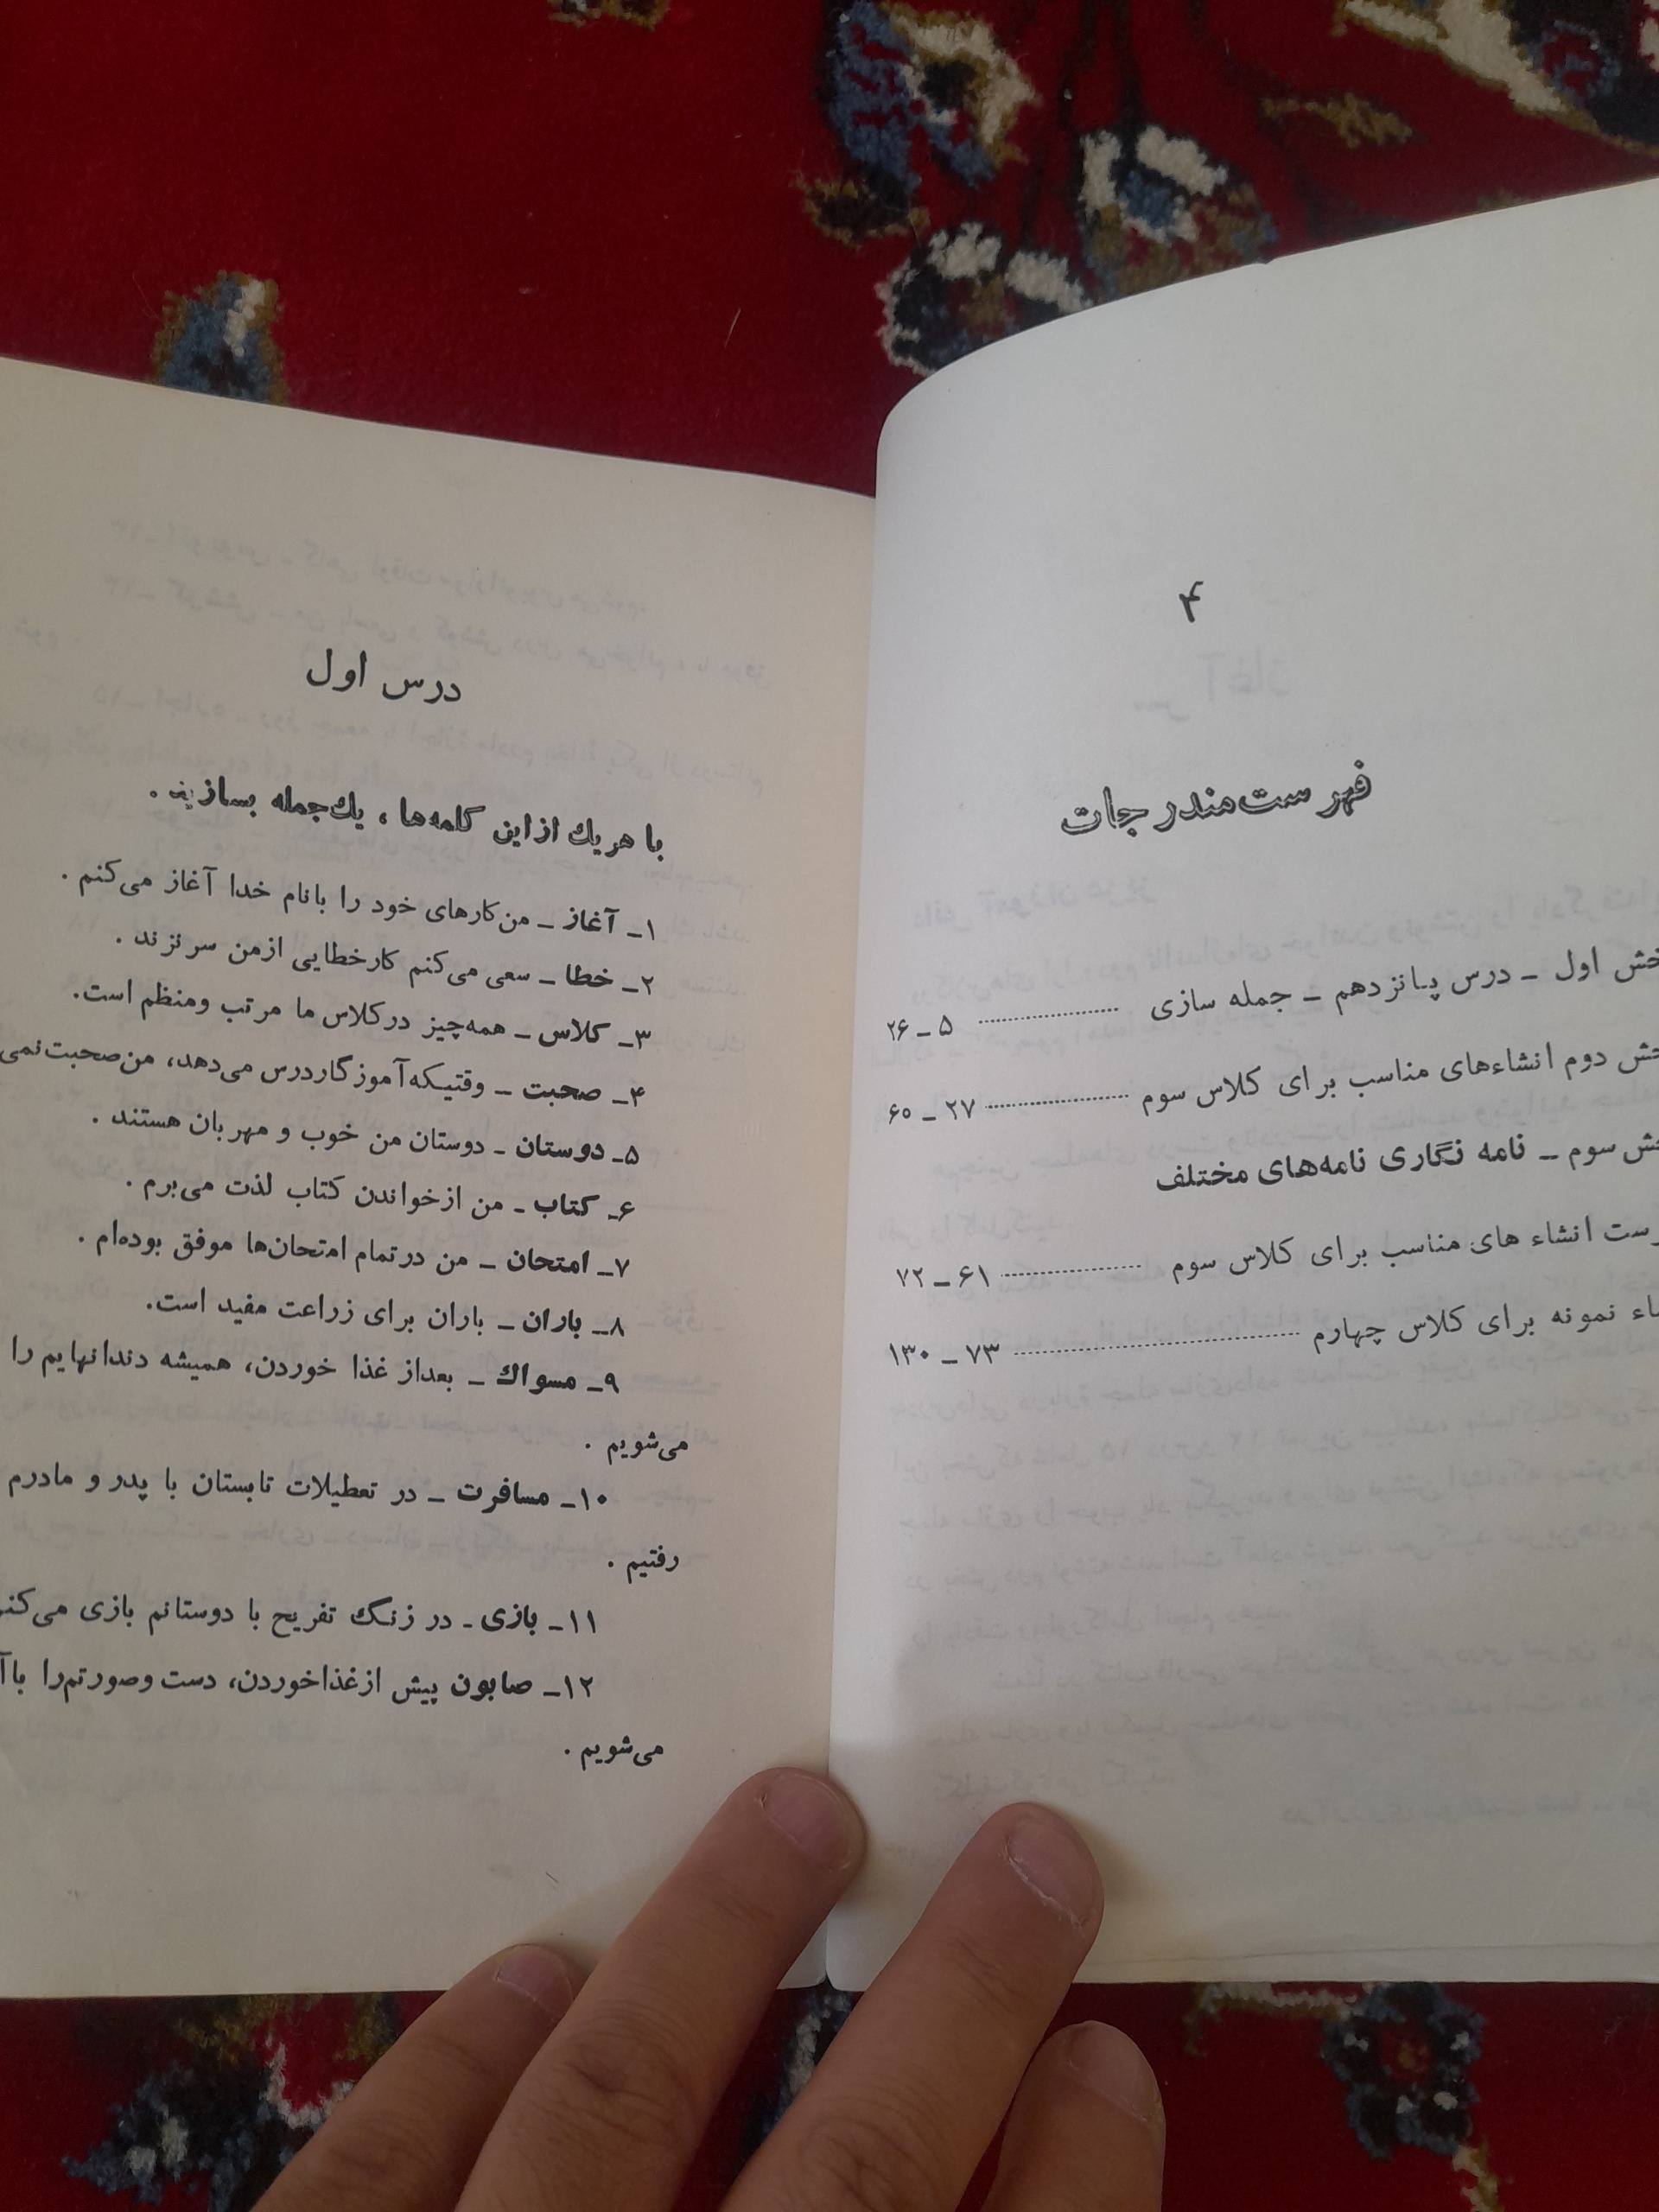 ۴
فهرست مندرجات
بخش اول ـ درس پانزدهم ـ جمله سازی ........ ۵ ـ ۲۶
بخش دوم انشاءهای مناسب برای کلاس سوم ........ ۲۷ ـ ۶۰
بخش سوم ـ نامه نگاری نامه‌های مختلف
انشاء های مناسب برای کلاس سوم ........ ۶۱ ـ ۷۲
نمونه برای کلاس چهارم ........ ۷۳ ـ ۱۳۰
درس اول
با هریك از این کلمه‌ها ، یك جمله بسازید .
۱ـ آغاز ـ من کارهای خود را بانام خدا آغاز می‌کنم .
۲ـ خطا ـ سعی می‌کنم کارخطایی ازمن سرنزند .
۳ـ کلاس ـ همه‌چیز درکلاس ما مرتب ومنظم است.
۴ـ صحبت ـ وقتیکه آموزگاردرس می‌دهد، من‌صحبت‌نمی
۵ـ دوستان ـ دوستان من خوب و مهربان هستند .
۶ـ کتاب ـ من ازخواندن کتاب لذت می‌برم .
۷ـ امتحان ـ من درتمام امتحان‌ها موفق بوده‌ام .
۸ـ باران ـ باران برای زراعت مفید است.
۹ـ مسواك ـ بعداز غذا خوردن، همیشه دندانهایم را
می‌شویم .
۱۰ـ مسافرت ـ در تعطیلات تابستان با پدر و مادرم
رفتیم .
۱۱ـ بازی ـ در زنگ تفریح با دوستانم بازی می‌کنم
۱۲ـ صابون پیش ازغذاخوردن، دست وصورتم‌را
می‌شویم .